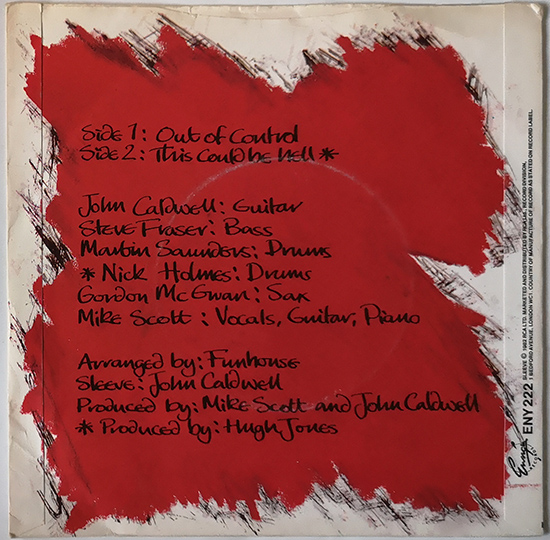 Side 1: Out of Control
Side 2: This Could be hell *
John Caldwell: Guitar
Steve Fraser: Bass
Martin Saunders: Drums
* Nick Holmes: Drums
Gordon McGwan: Sax
Mike Scott: Vocals, Guitar, Piano
Arranged by: Funhouse
Sleeve: John Caldwell
Produced by: Mike Scott and John Caldwell
* Produced by: Hugh Jones
ENY 222
SLEEVE © 1982 RCA LTD. MARKETED AND DISTRIBUTED BY RCA LTD., RECORD DIVISION,
1 BEDFORD AVENUE, LONDON WC1. COUNTRY OF MANUFACTURE OF RECORD AS STATED ON RECORD LABEL.
Ensign